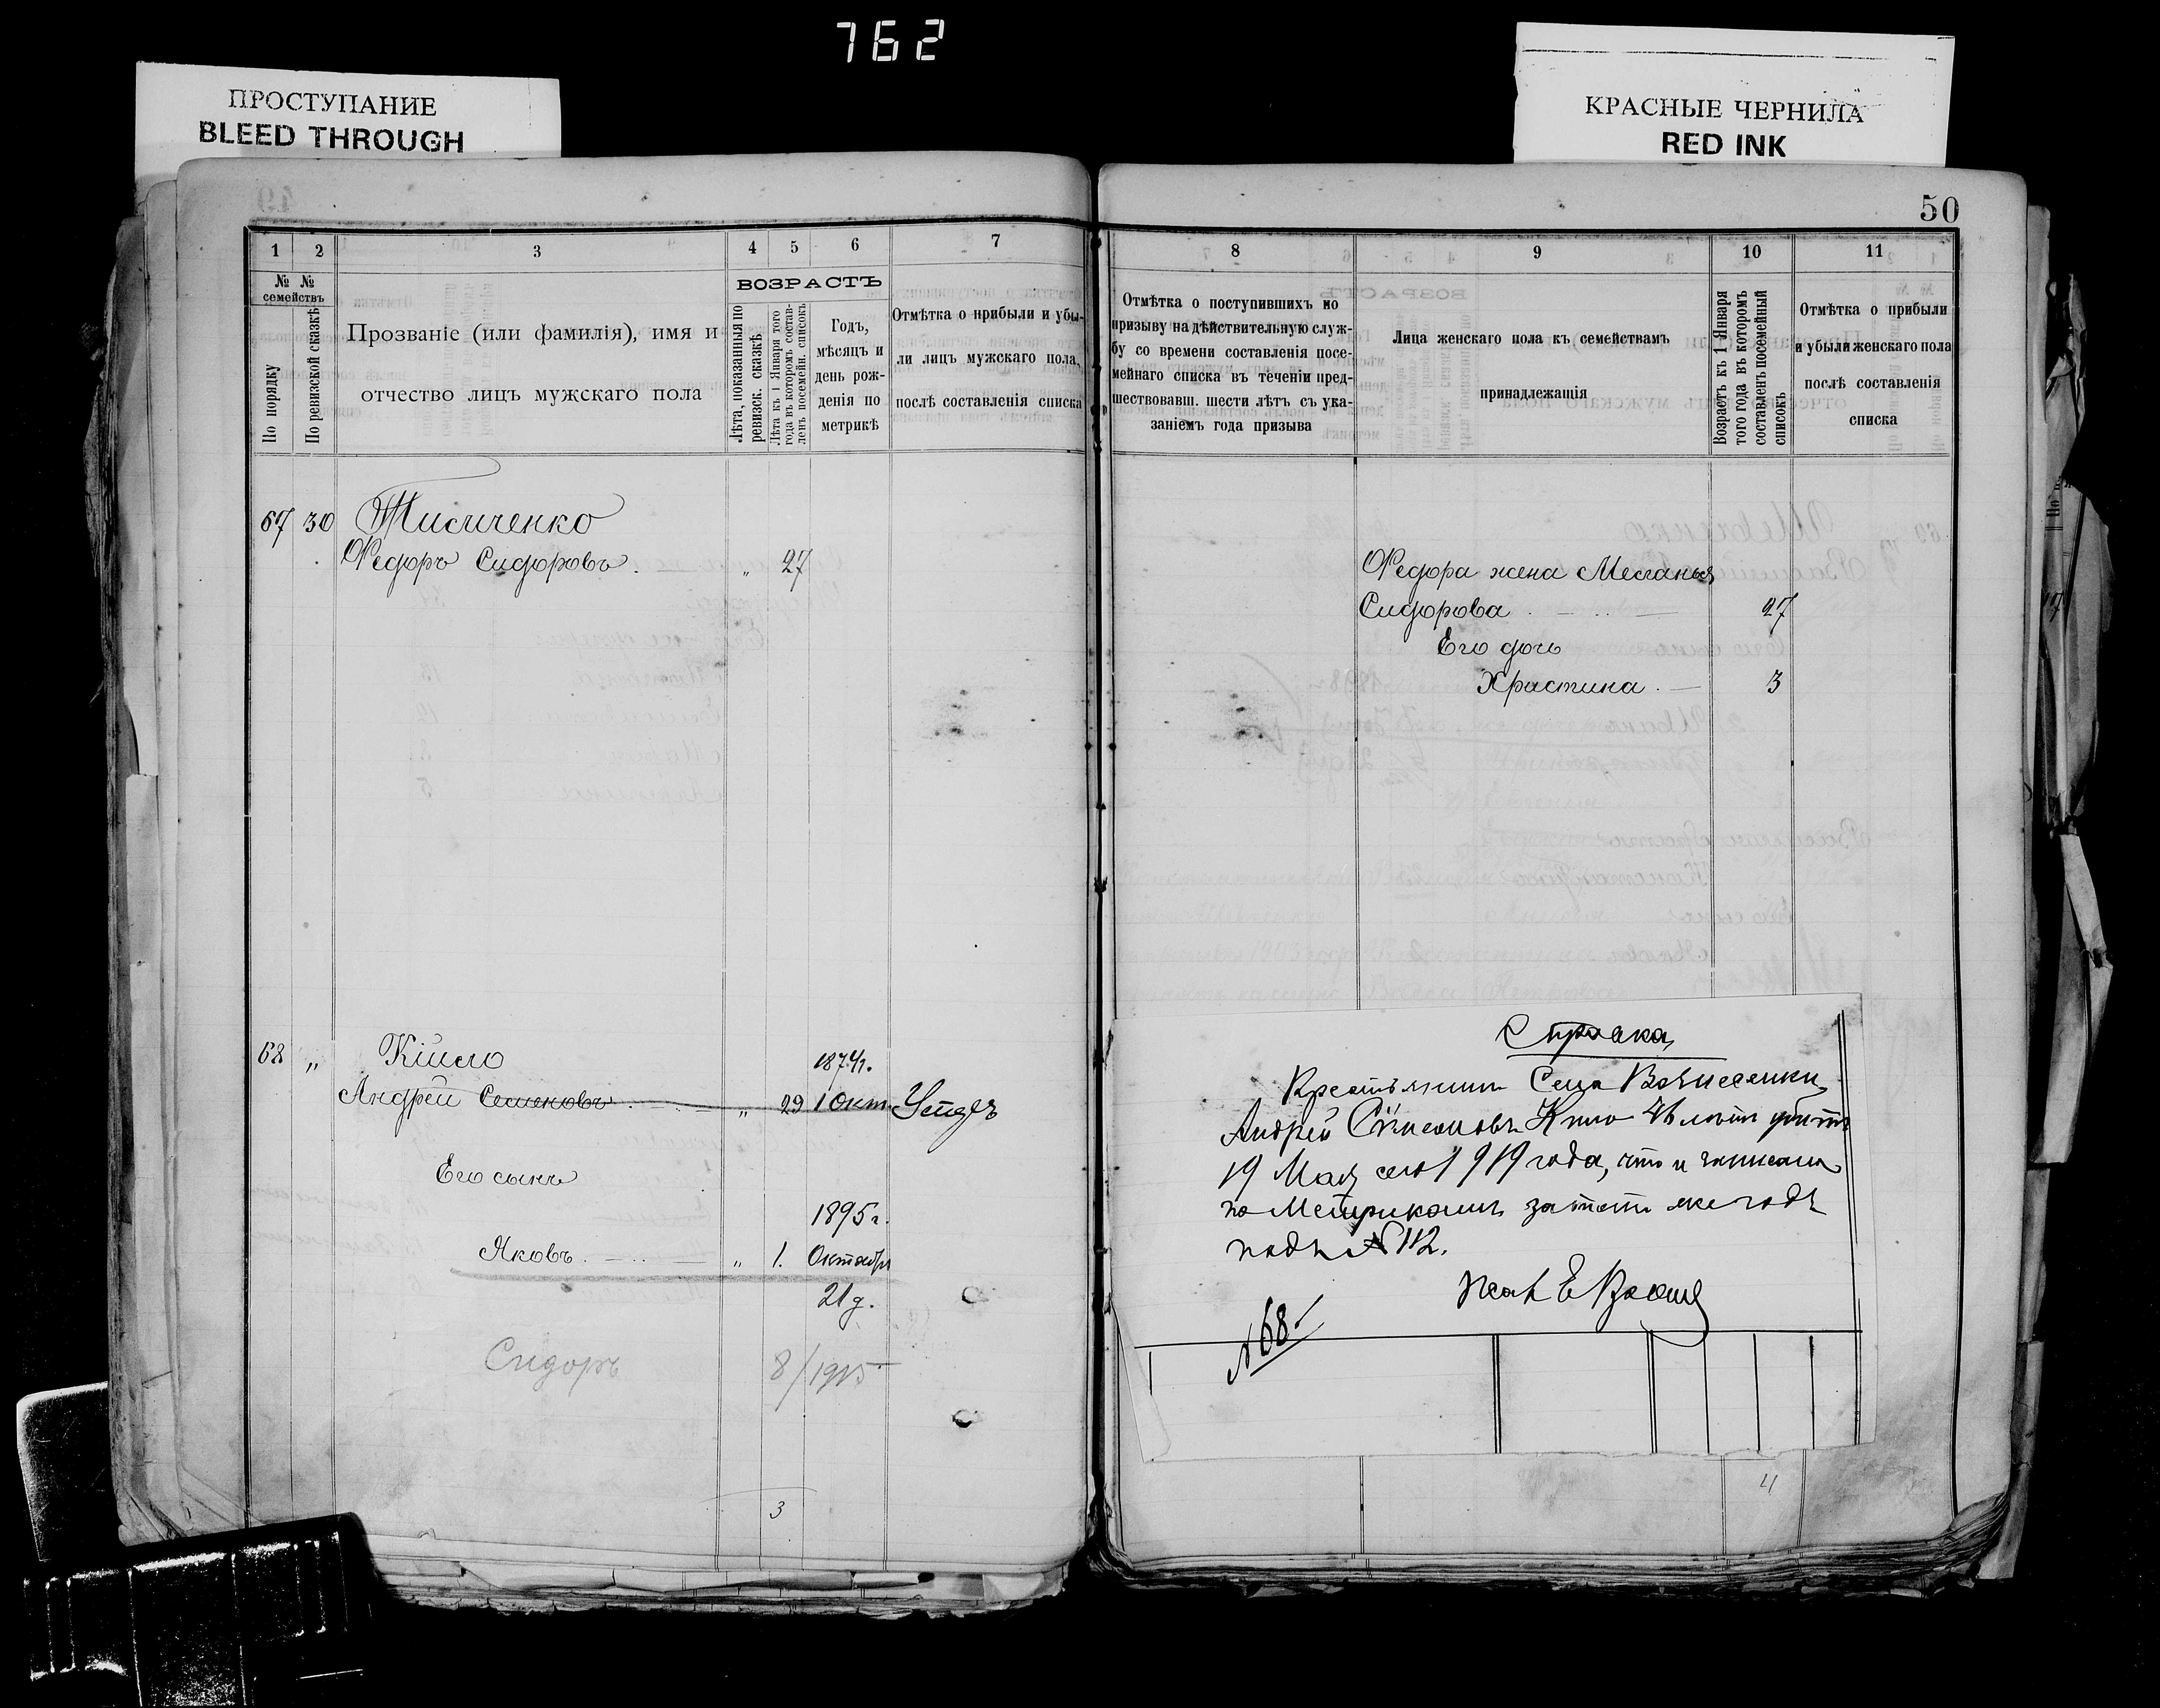 762
ПРОСТУПАНИЕ
BLEED THROUGH
КРАСНЫЕ ЧЕРНИЛА
RED INK
50
1 2 3 4 5 6 7
№ № семействъ
По порядку
По ревизской сказкѣ
Прозваніе (или фамилія), имя и
отчество лицъ мужскаго пола
ВОЗРАСТЪ
Лѣта, показанныя по
ревизск. сказкѣ
Лѣта къ 1 Января того
года въ которомъ состав-
ленъ посемейн. списокъ
Годъ,
мѣсяцъ и
день рож-
денія по
метрикѣ
Отмѣтка о прибыли и убы-
ли лицъ мужскаго пола,
послѣ составленія списка
67 30
Федоръ Сидоровъ „ 27
68 „
1874 г.
Андрей Семеновъ „ 29 1 Окт.
Его сынъ
1895 г.
Яковъ „ 1. Октября
21 д.
Сидоръ 8/1915
3
8 9 10 11
Отмѣтка о поступившихъ по
призыву на дѣйствительную служ-
бу со времени составленія посе-
мейнаго списка въ теченіи пред-
шествовавш. шести лѣтъ съ ука-
заніемъ года призыва
Лица женскаго пола къ семействамъ
принадлежащія
Возрастъ къ 1 Января
того года въ которомъ
составленъ посемейный
списокъ
Отмѣтка о прибыли
и убыли женскаго пола
послѣ составленія
списка
Федора жена Меланья
Сидорова 27
Его дочь
Христина 3
Справка
Крестьянинъ Села Вознесенки
Андрей 46 лѣтъ убитъ
19 Мая сего 1919 года, что и записано
по Метрикамъ за тотъ же годъ
подъ № 112.
№ 68
4